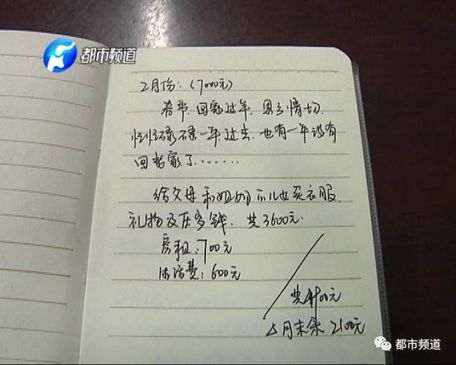 都市频道
2月份:(7000元)
春节,回家过年,思乡情切,
忙忙碌碌一年过去,也有一年没有
回老家了......
给父母和姐姐的儿女买衣服、
礼物及压岁钱,共3600元.
房租:700元
生活费:600元
共4900元
月末余2100元
都市频道